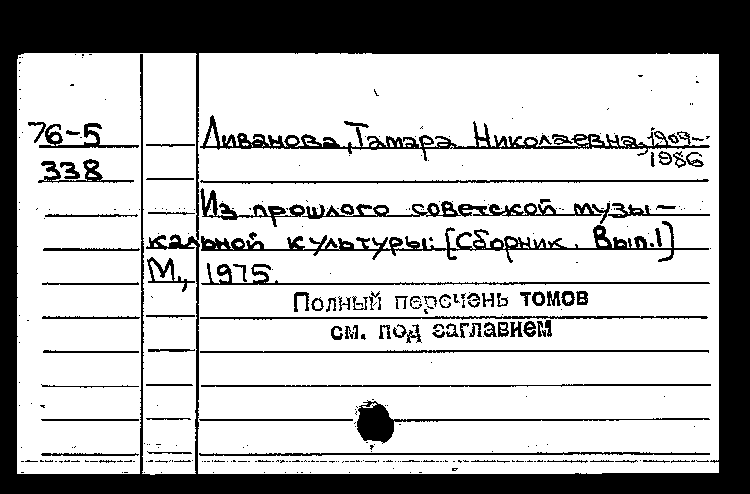 76-5 Ливанова, Тамара Николаевна, 1909-
338 1986
Из прошлого советской музы-
кальной культуры: [Сборник. Вып.1]
М., 1975.
Полный перечень томов
см. под заглавием